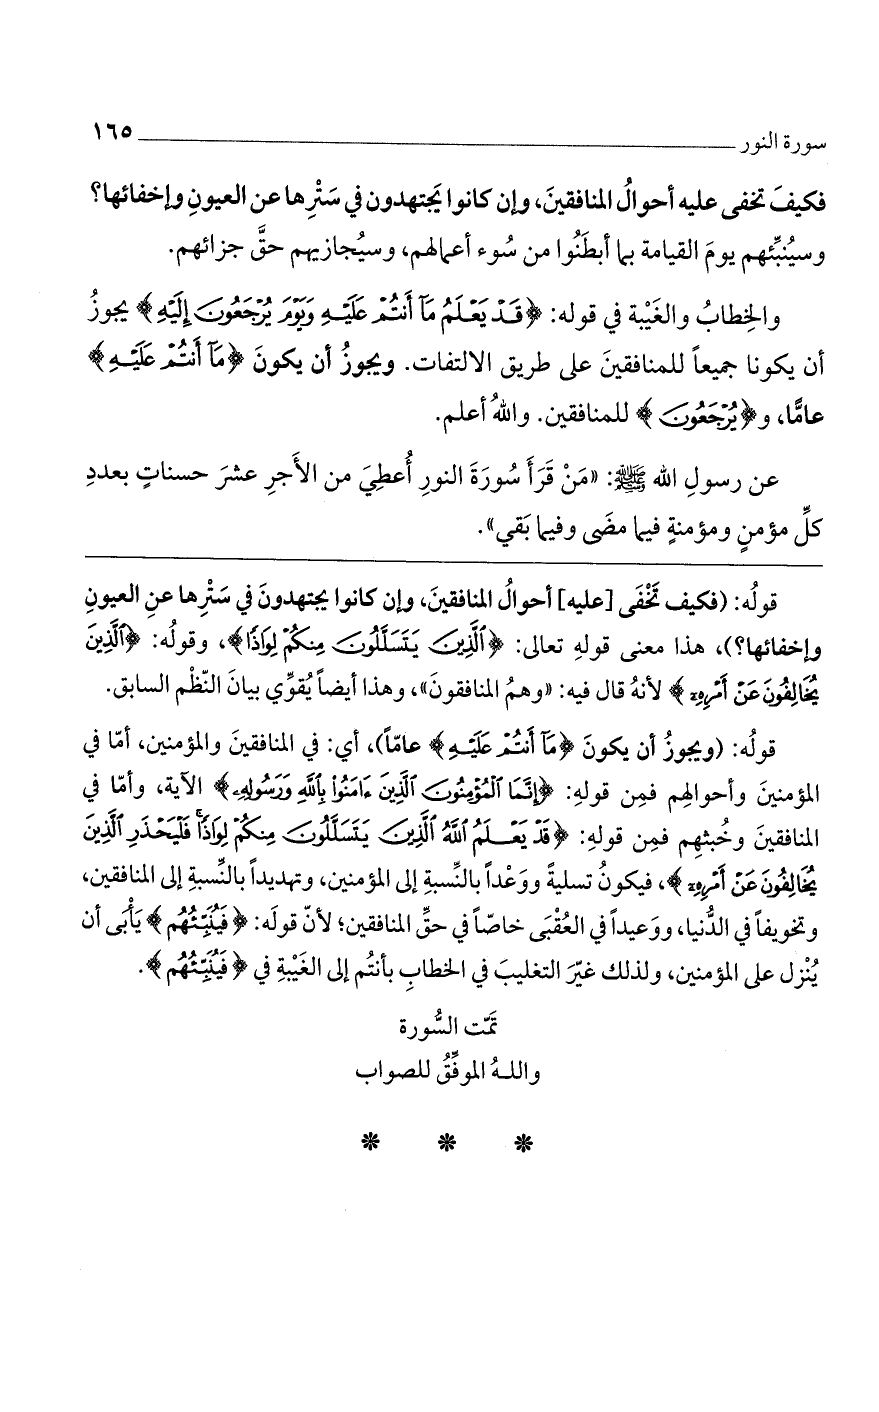 سورة النور ١٦٥
فكيفَ تخفى عليه أحوالُ المنافقينَ، وإن كانوا يَجتهدون في سَتْرِها عن العيونِ وإخفائها؟
وسيُنبِّئهم يومَ القيامة بما أبطَنُوا من سُوء أعمالهم، وسيُجازيهم حقَّ جزائهم.
والخِطابُ والغَيْبة في قوله: ﴿قَدْ يَعْلَمُ مَآ أَنتُمْ عَلَيْهِ وَيَوْمَ يُرْجَعُونَ إِلَيْهِ﴾ يجوزُ
أن يكونا جميعاً للمنافقينَ على طريق الالتفات. ويجوزُ أن يكونَ ﴿مَآ أَنتُمْ عَلَيْهِ﴾
عامًّا، و﴿يُرْجَعُونَ﴾ للمنافقين. واللهُ أعلم.
عن رسولِ الله ﷺ: «مَنْ قَرَأَ سُورَةَ النورِ أُعطِيَ من الأَجرِ عشرَ حسناتٍ بعددِ
كلِّ مؤمنٍ ومؤمنةٍ فيما مضَى وفيما بَقي».
قولُه: (فكيف تَخْفَى [عليه] أحوالُ المنافقينَ، وإن كانوا يجتهدونَ في سَتْرِها عنِ العيونِ
وإخفائها؟)، هذا معنى قولهِ تعالى: ﴿ٱلَّذِينَ يَتَسَلَّلُونَ مِنكُمْ لِوَاذًا﴾، وقولُه: ﴿ٱلَّذِينَ
يُخَالِفُونَ عَنْ أَمْرِهِۦ﴾ لأنهُ قال فيه: «وهمُ المنافقونَ»، وهذا أيضاً يُقوِّي بيانَ النّظْم السابق.
قولُه: (ويجوزُ أن يكونَ ﴿مَآ أَنتُمْ عَلَيْهِ﴾ عامّاً)، أي: في المنافقينَ والمؤمنين، أمّا في
المؤمنينَ وأحوالِهم فمِن قولهِ: ﴿إِنَّمَا ٱلْمُؤْمِنُونَ ٱلَّذِينَ ءَامَنُوا۟ بِٱللَّهِ وَرَسُولِهِۦ﴾ الآية، وأمّا في
المنافقينَ وخُبثِهم فمِن قولهِ: ﴿قَدْ يَعْلَمُ ٱللَّهُ ٱلَّذِينَ يَتَسَلَّلُونَ مِنكُمْ لِوَاذًا ۚ فَلْيَحْذَرِ ٱلَّذِينَ
يُخَالِفُونَ عَنْ أَمْرِهِۦ﴾، فيكونُ تسليةً ووَعْداً بالنِّسبةِ إلى المؤمنين، وتهديداً بالنِّسبةِ إلى المنافقين،
وتخويفاً في الدُّنيا، ووَعيداً في العُقْبَى خاصّاً في حقِّ المنافقين؛ لأنّ قولَه: ﴿فَيُنَبِّئُهُم﴾ يَأْبَى أن
يُنْزل على المؤمنين، ولذلك غيّرَ التغليبَ في الخطابِ بأنتُم إلى الغَيْبةِ في ﴿فَيُنَبِّئُهُم﴾.
تمّت السُّورة
واللـهُ الموفّقُ للصواب
* * *